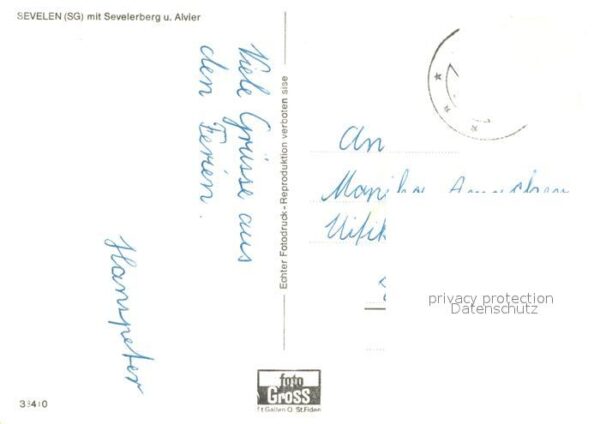 SEVELEN (SG) mit Sevelerberg u. Alvier
Viele Grüsse aus
den Ferien.
Hanspeter
Echter Fotodruck - Reproduktion verboten sise
An
privacy protection
Datenschutz
foto
Gross
St. Gallen O. St. Fiden